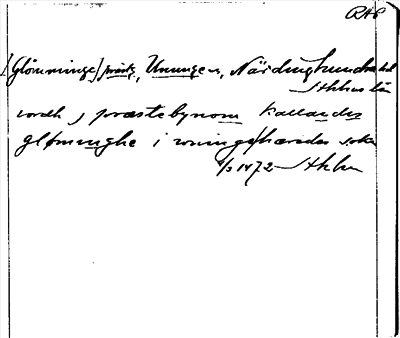 RAP
[Glömminge] prästg, Ununge sn, Närdinghundra hd
Sthlms län
oc j præstebynom kallandes
gløminghe i wninge hæredes sokn
1/3 1472 Sthlm